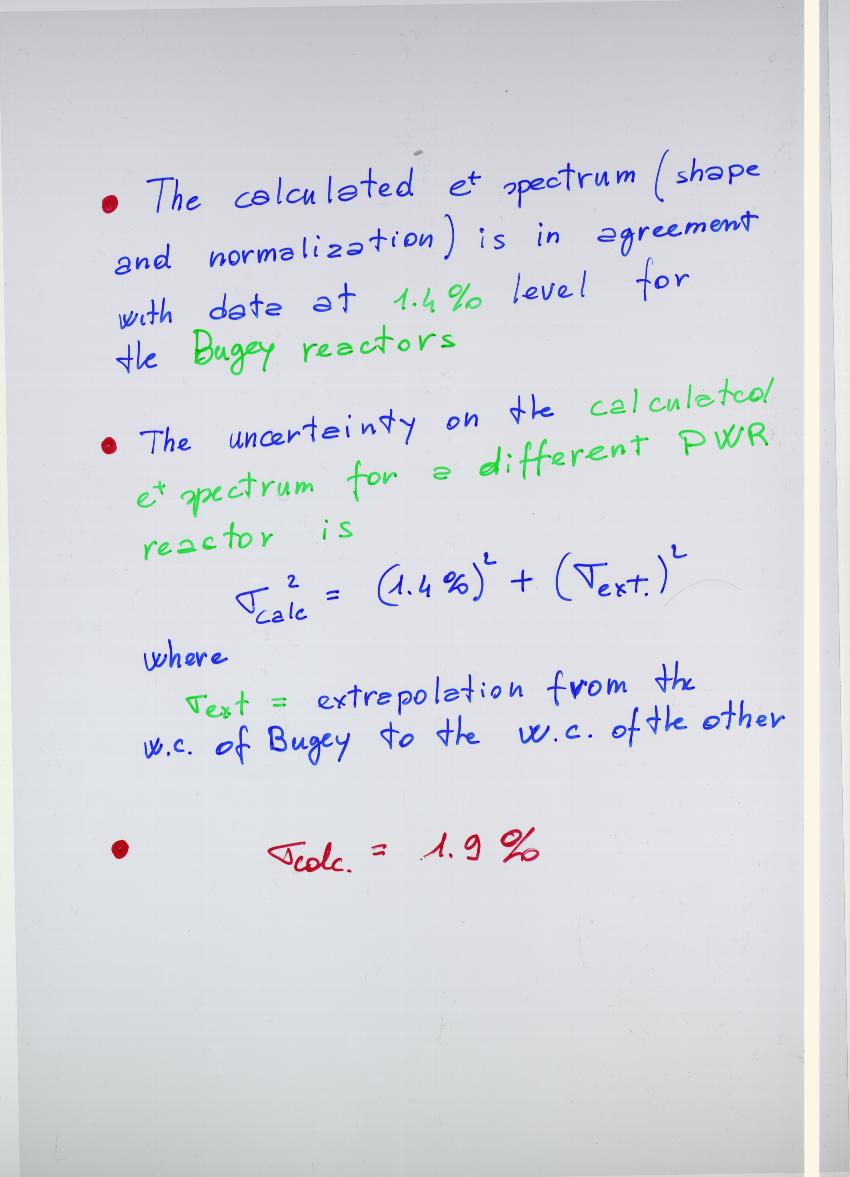 • The calculated e⁺ spectrum (shape
and normalization) is in agreement
with data at 1.4% level for
the Bugey reactors
• The uncertainty on the calculated
e⁺ spectrum for a different PWR
reactor is
σ²calc = (1.4%)² + (σext.)²
where
σext = extrapolation from the
w.c. of Bugey to the w.c. of the other
• σcalc. = 1.9%